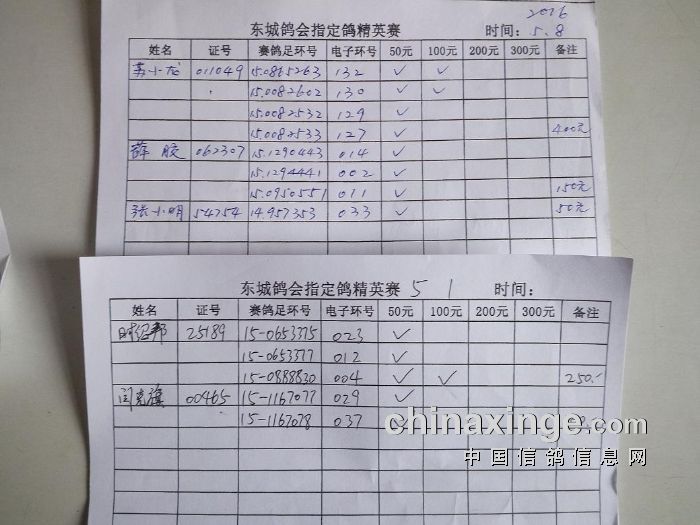 2016
东城鸽会指定鸽精英赛 时间: 5.8
姓名 证号 赛鸽足环号 电子环号 50元 100元 200元 300元 备注
苏小龙 011049 15.0865263 132 ✓ ✓
15.0082602 130 ✓ ✓
15.0082532 129 ✓
15.0082533 127 ✓ 400元
薛胶 062307 15.1290443 014 ✓
15.1294441 002 ✓
15.0950551 011 ✓ 150元
张小明 54754 14.957353 033 ✓ 50元
东城鸽会指定鸽精英赛 5 1 时间:
姓名 证号 赛鸽足环号 电子环号 50元 100元 200元 300元 备注
时经邦 25189 15-0653375 023 ✓
15-0653377 012 ✓
15-0888830 004 ✓ ✓ 250.-
闫克旗 00465 15-1167077 029 ✓
15-1167078 037 ✓
chinaxinge.com
中国信鸽信息网